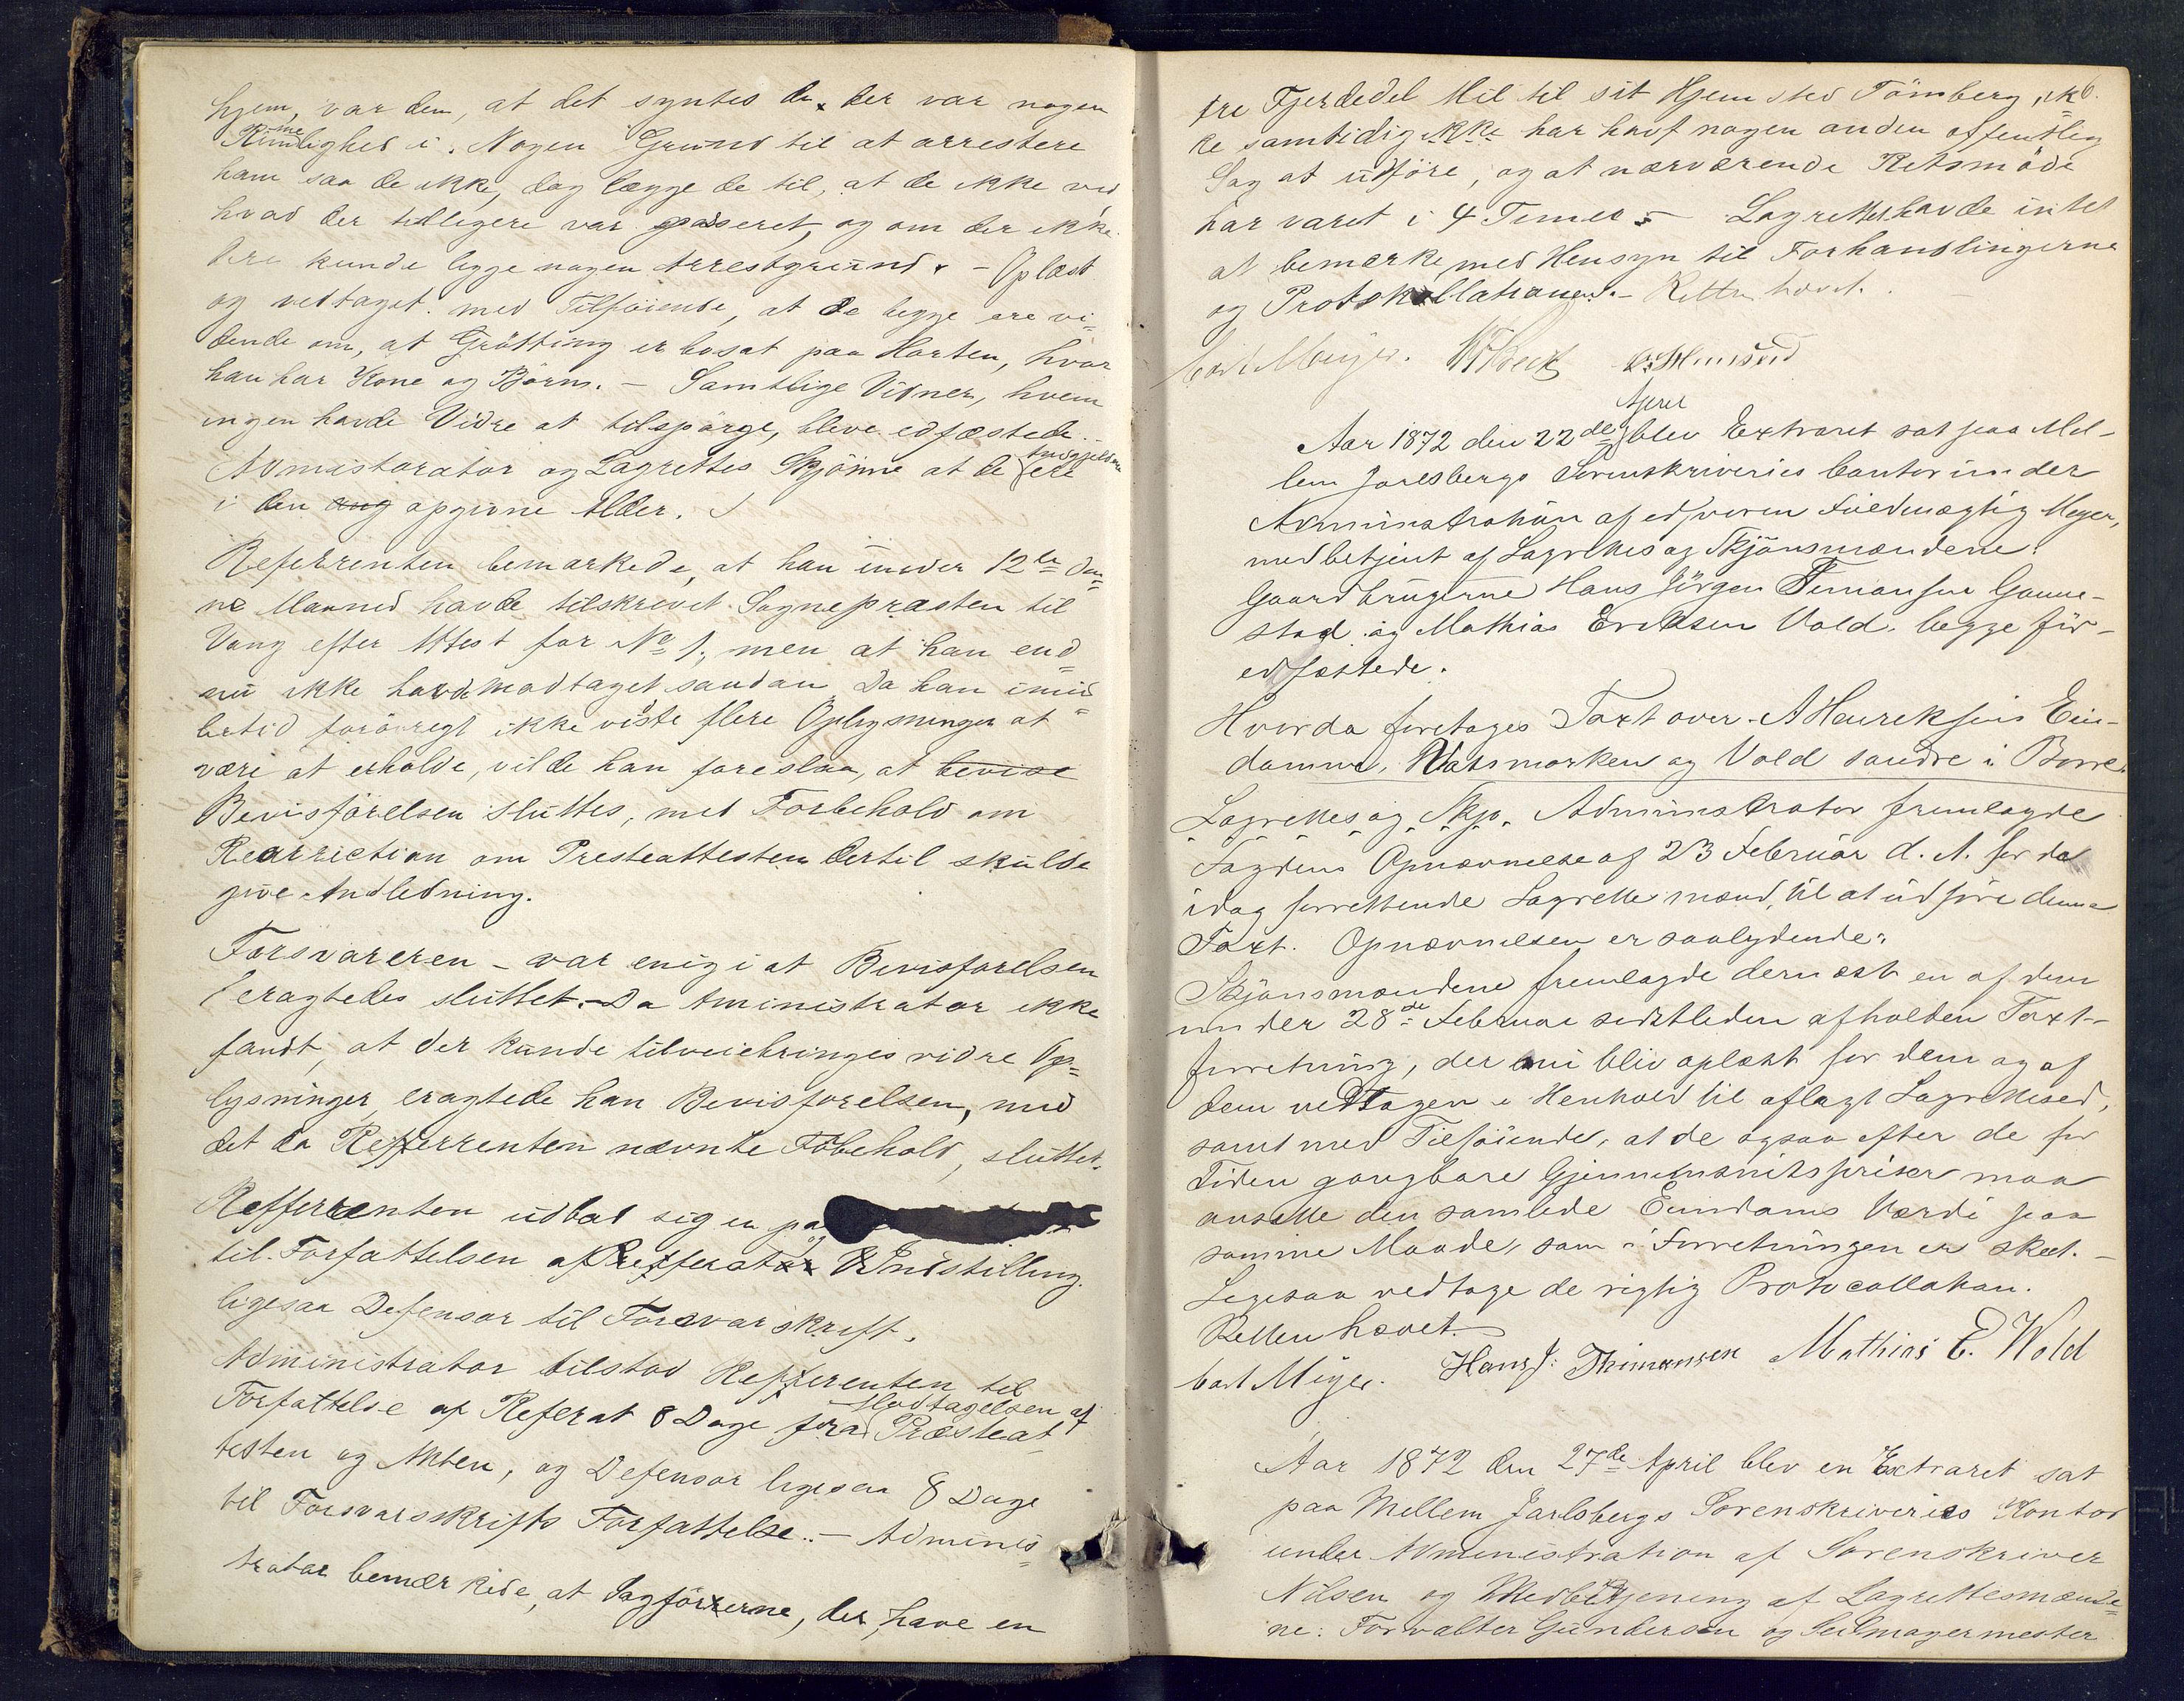 hjem, var den, at det syntes dem der var nogen
Rimmelighed i. Nogen Grund til at arrestere
ham saa de ikke, dog lægge de til, at de ikke ved
hvad der tidligere var passeret, og om der ikke
deri kunde ligge nogen Arrestgrund. - Oplæst
og vedtaget. med Tilføiende, at de begge ere vi=
dende om, at Grötting er bosat paa Horten, hvor
han har Kone og Börn. - Samtlige Vidner, hvem
ingen havde Vidre at tilspörge, bleve edfæstede. -
Admistorator og Lagrettes Skjönne at de Angjeldene ere
i den ang opgivne Alder.
Referrenten bemærkede, at han under 12te den=
ne Maaned havde tilskrevet Sognepræsten til
Vang efter Attest for No 1, men at han end=
nu ikke havde modtaget saadan. Da han imid=
lertid forövregt ikke viste flere Oplysninger at
være at erholde, vilde han foreslaa, at bevise
Bevisförelsen sluttes, med Forbehold om
Rearriction om Presteattesten dertil skulde
give Andledning.
Forsvareren - var enig i at Bevisforelsen
eragtedes sluttet. - Da Aministrator ikke
fandt, at der kunde tilveiebringes vidre Op=
lysninger eragtede han Bevisforelsen, med
det da Refferrenten nævnte Föbehold, sluttet.
Refferrenten udbad sig en pa
til Forfattelsen af Refferat og Indstilling
ligesaa Defensor til Forsvarskrift.
Administrator tilstod Refferenten til
Forfattelse af Referat 8 Dage fra Modtagelsen af Præsteat
testen og Akten, og Defensor ligesaa 8 Dage
til Forsvarsskrifts Forfattelse. - Adminis=
trator bemærkede, at Sagförerne, der have en
6.
tre Fjerdedel Mil til sit Hjemsted Tömberg, ik=
ke samtidig ikke har havt nogen anden offentlig
Sag at udföre, og at nærværende Retsmöde
har varet i 4 Timer. - Lagrettet havde intet
at bemærke med Hensyn til Forhandlingerne
og Protokollationen. - Retten hævet.
Carl Meyer.
Aar 1872 den 22de April blev Extraret sat paa Mel-
lem Jarlsbergs Sorenskriveries Contor under
Administration af edsvoren Fuldmægtig Meyer,
medbetjent af Lagrettes og Skjönsmændene:
Gaardbrugerne Hans Jörgen Timansen Gaune-
stad og Mathias Eriksen Vold, begge för-
edfæstede.
Hvorda foretoges Taxt over A Henriksens Ein-
domme, Vatsmarken og Vold søndre i Borre.
Lagrettes og Skjø. Administrator fremlagde
Fogdens Opnævnelse af 23 Februar d. A. for de
idag forrettende Lagrettesmænd, til at udføre denne
Taxt. Opnævnelsen er saalydende:
Skjönsmændene fremlagde dernæst en af dem
under 28de Februar sidstleden afholden Taxt-
forretning, der nu blev oplæst for dem og af
dem vedtagen i Henhold til aflagt Lagrettesed,
samt med Tilføiende, at de ogsaa efter de for
Tiden gangbare Gjennemsnitspriser maa
ansætte den samlede Eiendoms Værdi paa
samme Maade, som i Forretningen er skeet. -
Ligesaa vedtoge de rigtig Protocollation.
Retten hævet.
Carl Meyer. Hans J. Thimansen Mathias E. Wold
Aar 1872 den 27de April blev en Extraret sat
paa Mellem Jarlsbergs Sorenskriveries Kontor
under Administration af Sorenskriver
Nilsen og Medbetjening af Lagrettesmænde=
ne: Forvalter Gundersen og Seilmagermester